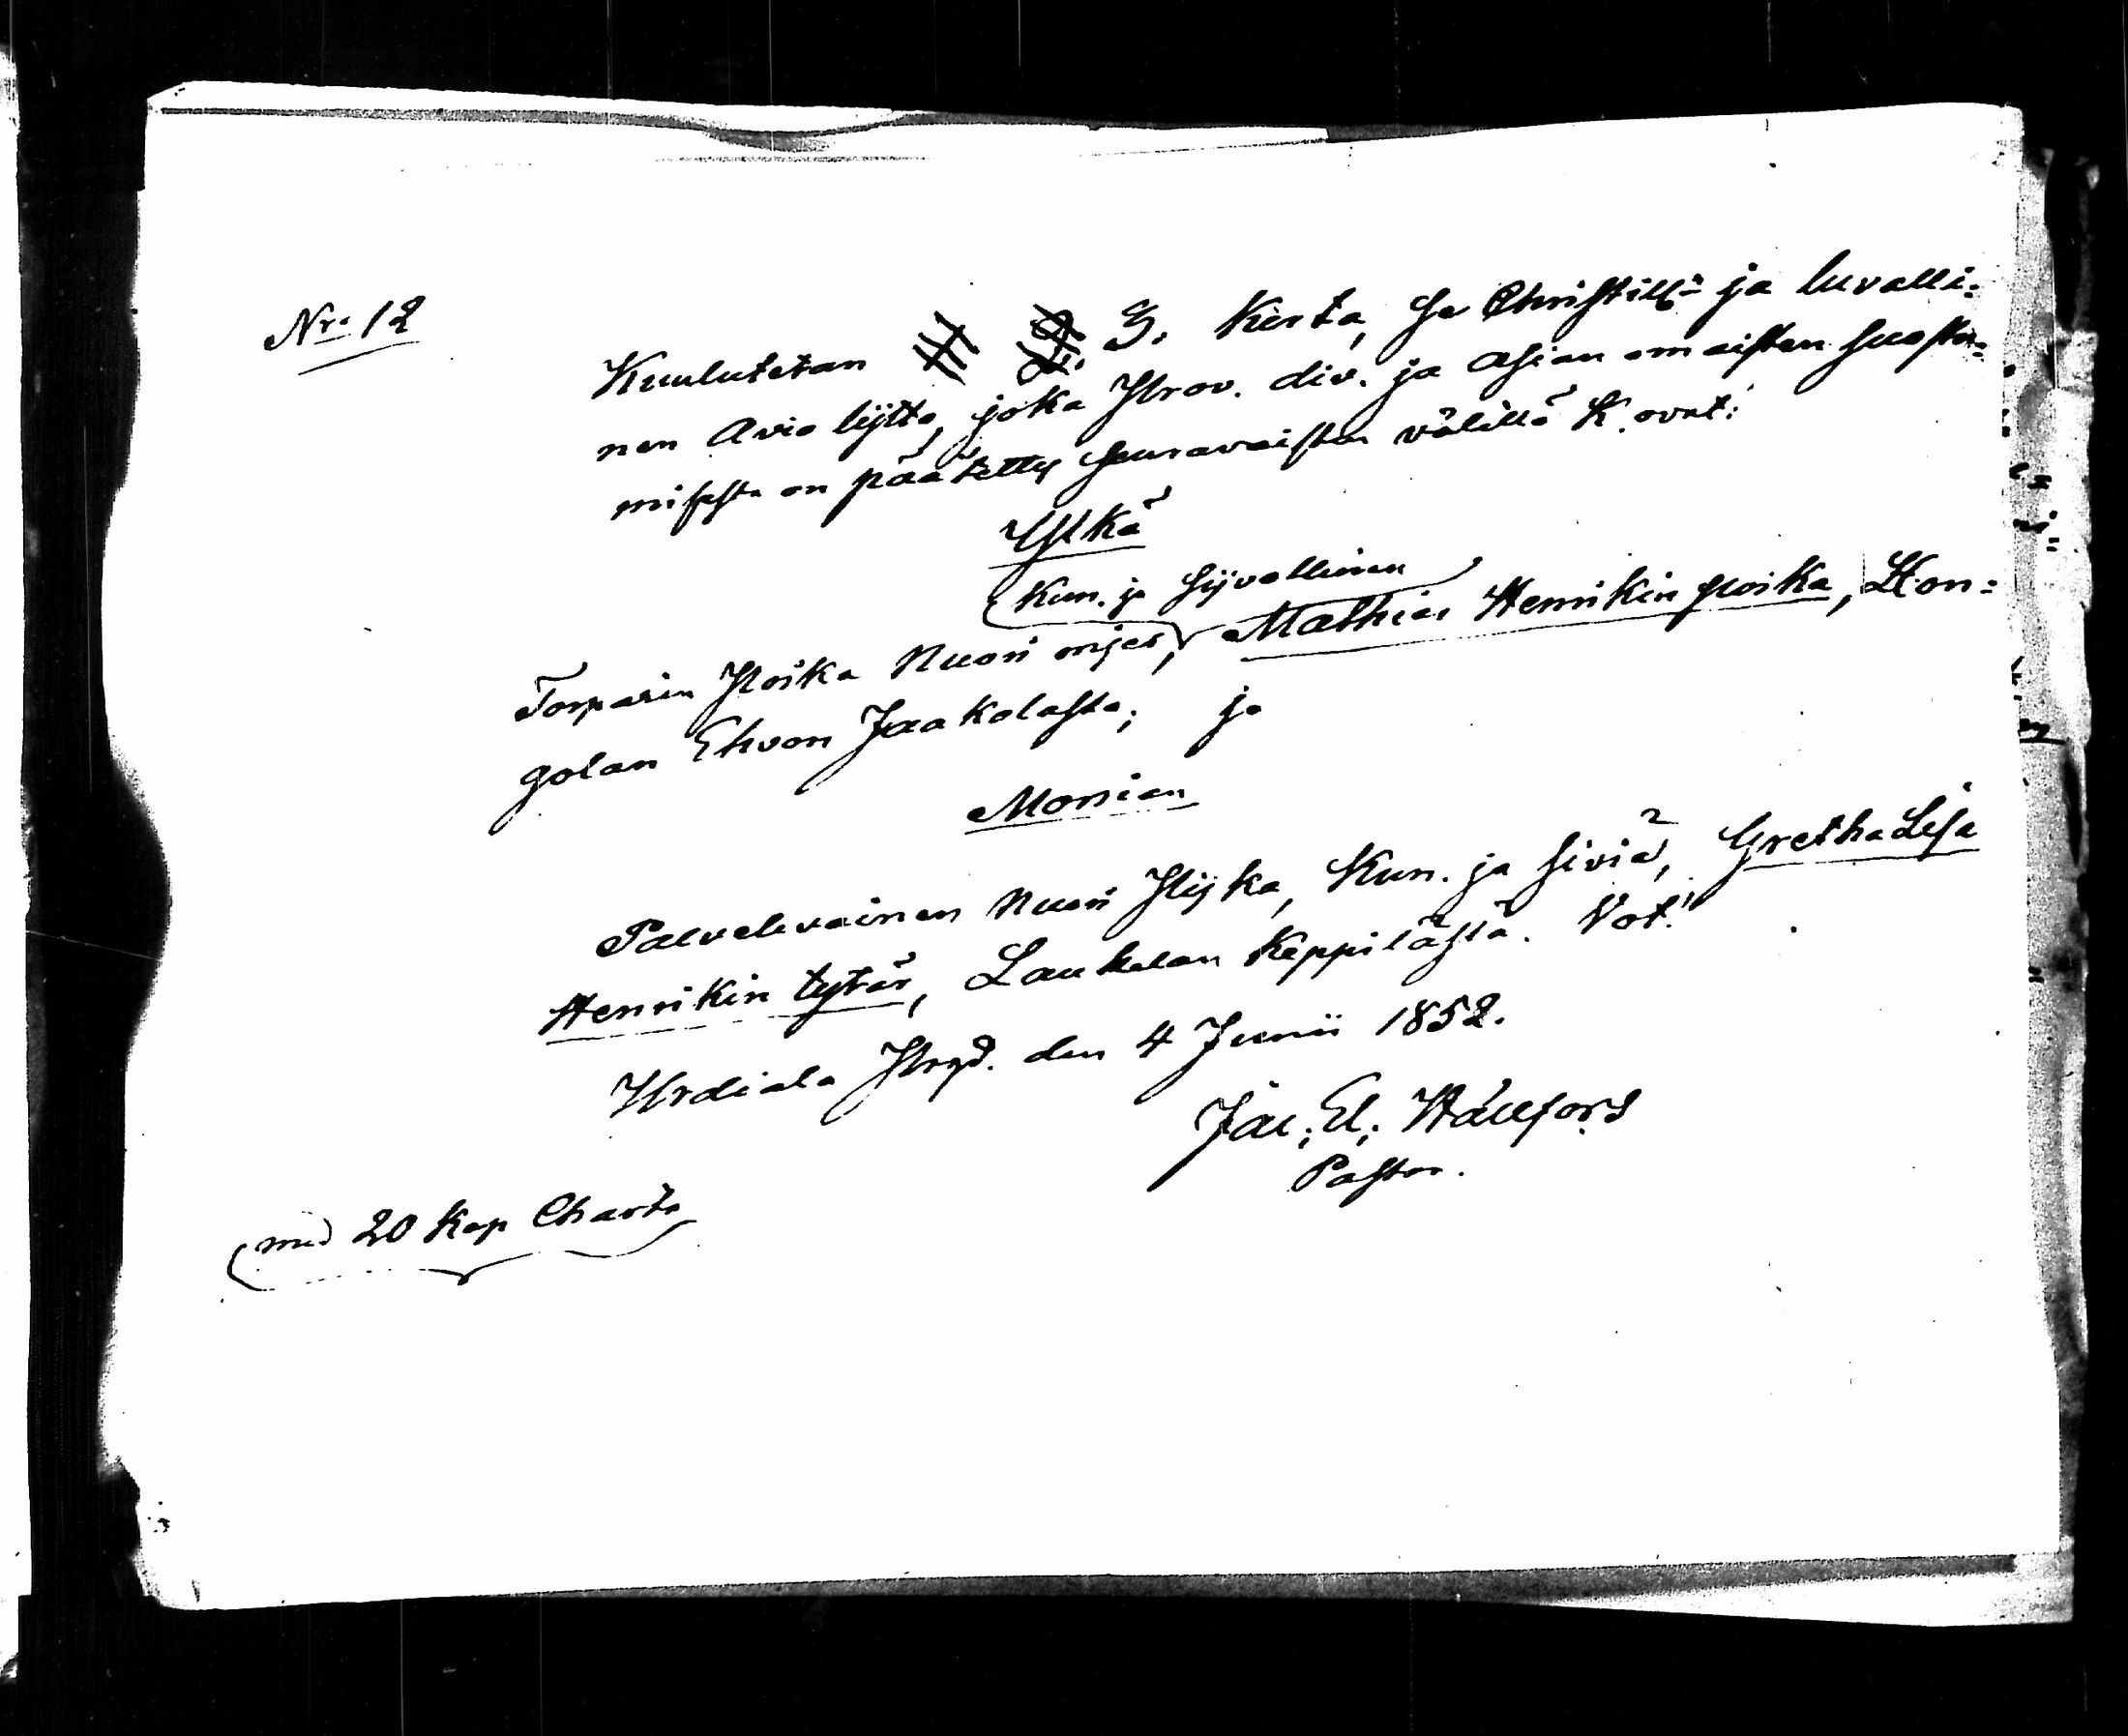 Nro 12
Kuulutetan 3. Kerta, se Christill: ja luvalli=
nen Avio liitto, joka Prov. div. ja asian omaisten suostu=
misesta on päätetty seuravaisten välillä K. ovat:
Ylkä
(Kun. ja Sijvollinen)
Torparin Poika Nuori mjes, Mathias Henrikin poika, Hon=
golan Ehvon Jaakolasta; ja
Morsian
Palvelevainen Nuori Pijka, Kun. ja siviä, Gretha Lisa
Henrikin tytär, Laukelan Keppilästä. Vot!
Urdiala Prgd. den 4 Junii 1852.
Jac. El. Hällfors
Pastor.
(med 20 Kop Charta